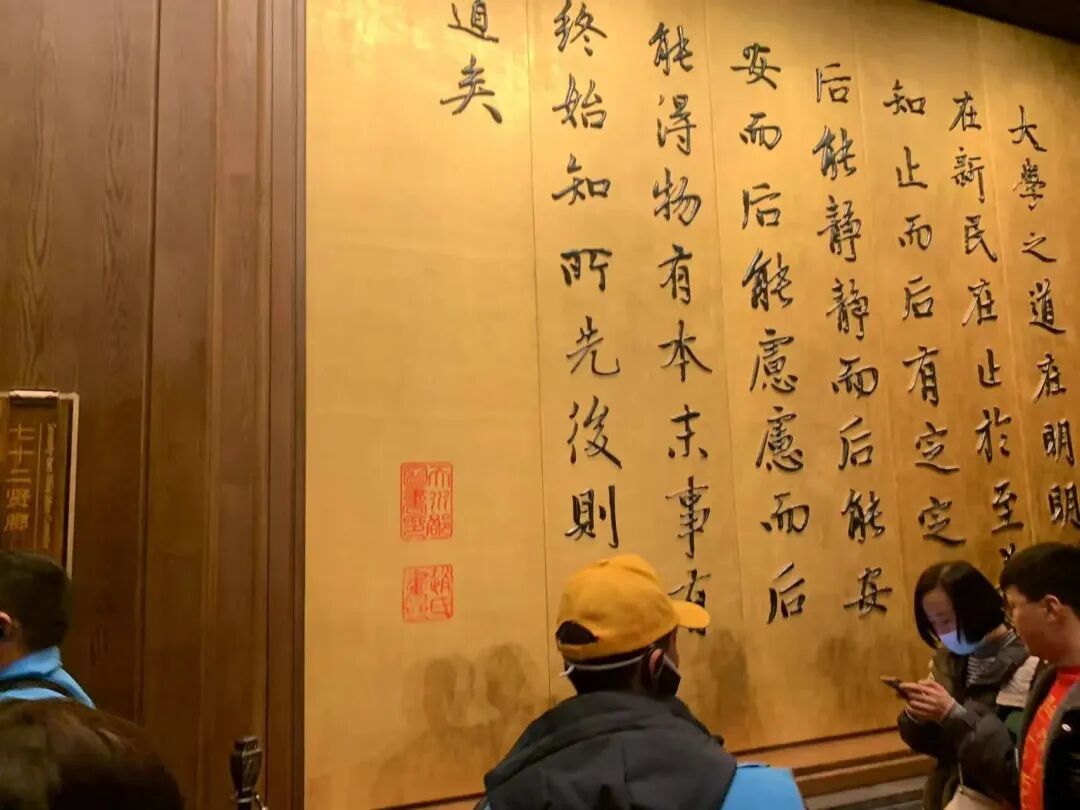 大學之道在明明
在新民在止於至
知止而后有定定
后能静静而后能安
安而后能慮慮而后
能得物有本末事有
終始知所先後則
道矣
天水郡圖書印
趙氏書印
七十二贤廊